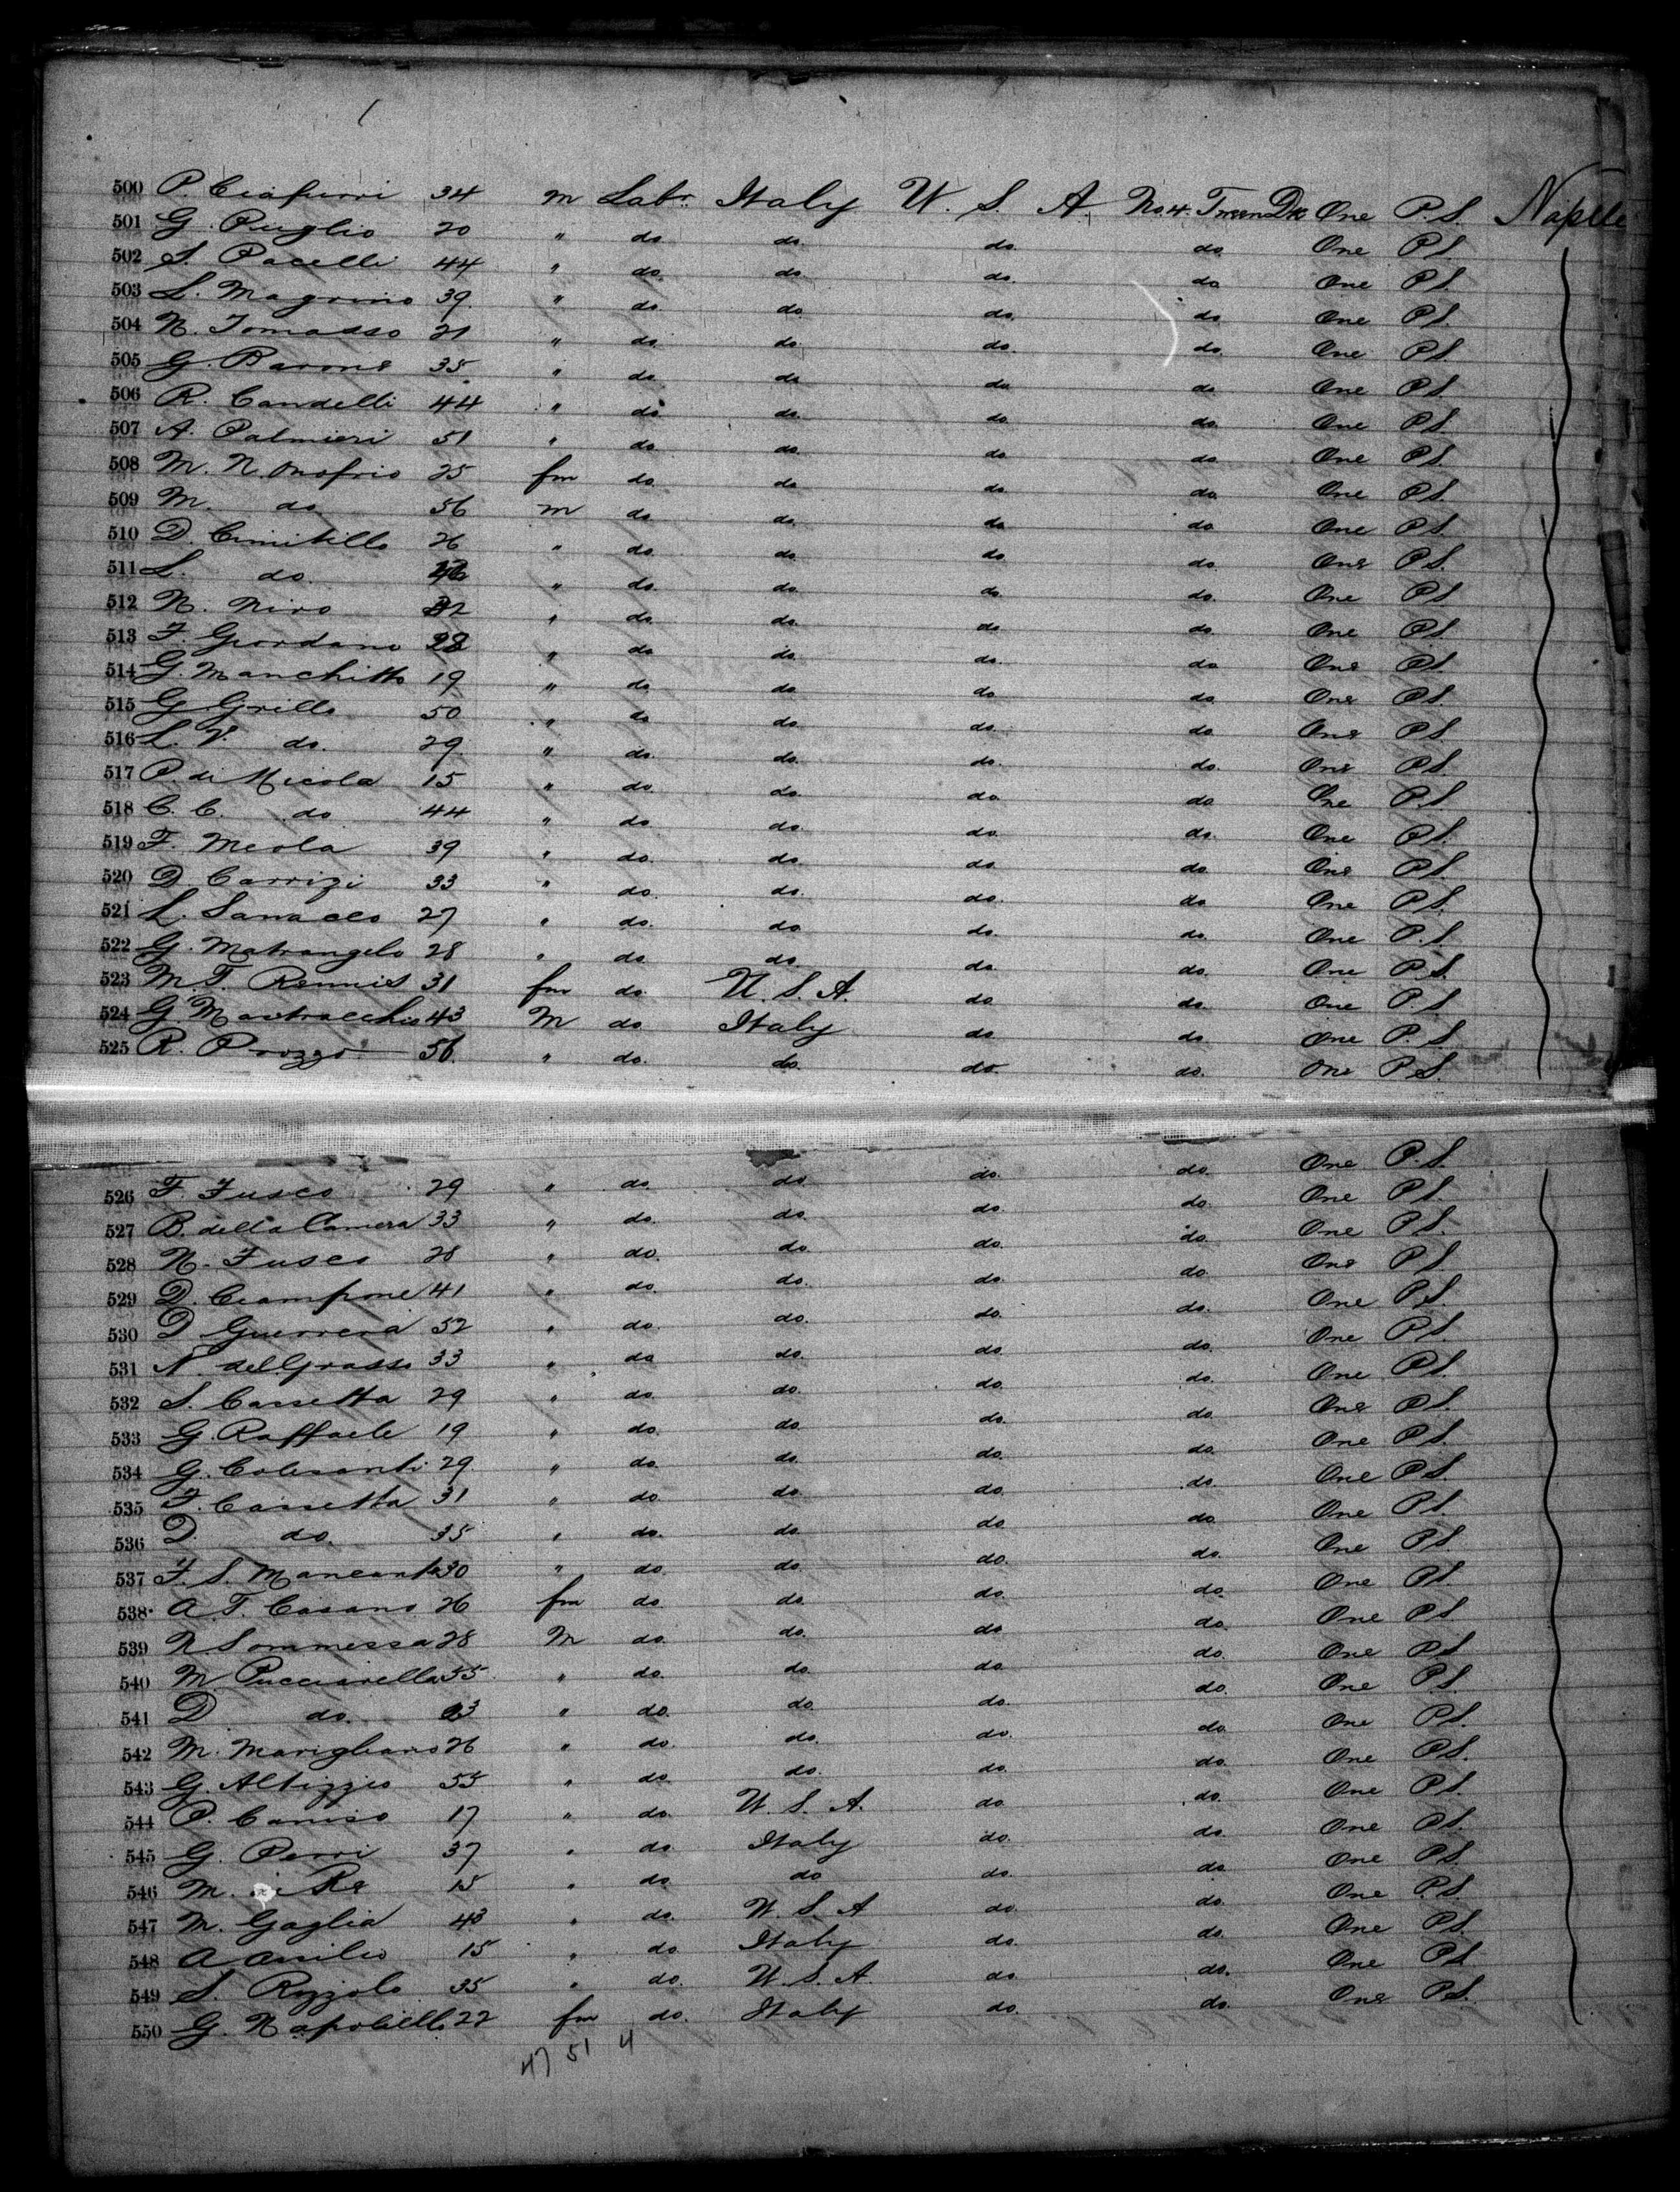 500 P. Ciafurri 34 m Labr. Italy U. S. A. No. 4. Tween Dk One P.S. Naples
501 G. Puglio 20 " do do. do. do. One P.S.
502 S. Pacelli 44 " do. do. do. do One P.S.
503 L. Magrino 39. " do. do. do. do. One P.S.
504 N. Tomasso 21 " do. do. do. do. One P.S.
505 G. Barone 35 " do. do do do One P.S.
506 R. Candelli 44 " do. do. do. do. One P.S.
507 A. Palmieri 51 " do. do. do. do. One P.S.
508 M. N. Onofrio 25 fm do. do do. do One P.S.
509 M. do. 56 m do. do. do do One P.S.
510 D. Cimitillo 26 " do. do. do. do. One P.S.
511 L. do. " do. do. do do. One P.S.
512 N. Niro " do. do. do do. One P.S.
513 F. Giordano 28 " do do. do. do One P.S.
514 G. Manchitto 19 " do. do do do. One P.S.
515 G. Grillo 50 " do do. do. do One P.S.
516 L. V. do. 29 " do. do. do. do. One P.S.
517 P. di Nicola 15 " do. do. do. do One P.S.
518 C. C. do 44 " do. do. do. do. One P.S.
519 F. Meola 39 " do. do. do. do. One P.S.
520 D Carrizi 33 " do. do. do. do One P.S.
521 L. Sanacco 27 " do. do do. do. One P.S.
522 G. Matrangelo 28 " do. do. do. do. One P.S.
523 M. F. Rennis 31 fm do. U. S. A. do do. One P.S.
524 G Mastracchio 43 M do. Italy do. do. One P.S.
525 R. Prozzo 56. " do. do. do. do. One P.S.
526 F. Fusco 29 " do. do. do. do. One P.S.
527 B. della Camera 33 " do. do. do do. One P.S.
528 N. Fusco 28 " do. do. do. do. One P.S.
529 D. Ciampone 41 " do. do. do. do. One P.S.
530 D Guerrera 52 " do. do. do. do. One P.S.
531 N. del Grasso 33 " do do. do. do. One P.S.
532 S. Cassetta 29 " do. do. do. do. One P.S.
533 G. Raffaele 19 " do. do. do. do. One P.S.
534 G. Colesanti 29 " do. do. do. do. One P.S.
535 F. Cassetta 31 " do. do. do. do. One P.S.
536 D. do. 35 " do. do. do do. One P.S.
537 F. S. 30 " do. do. do. do. One P.S.
538 A. F. Casano 26 fm do do. do. do. One P.S.
539 N. Sommessa 28 M do. do. do do. One P.S.
540 M. Pucciarella 55 " do. do. do do. One P.S.
541 D do. " do. do. do. do. One P.S.
542 M. Marigliano 26 " do. do. do. do. One P.S.
543 G. Altizzio 55 " do. do. do. do. One P.S.
544 P. Caruso 17 " do. U. S. A. do do. One P.S.
545 G. Perri 37 " do. Italy do. do. One P.S.
546 M. Re 15 " do. do do. do. One P.S.
547 M. Gaglia 43 " do. U. S. A do. do. One P.S.
548 A 15 " do Italy do. do. One P.S.
549 S. Rizzolo 35 " do. U. S. A. do do. One P.S.
550 G. Napolielli 22 fm do. Italy do. do. One P.S.
47 51 4